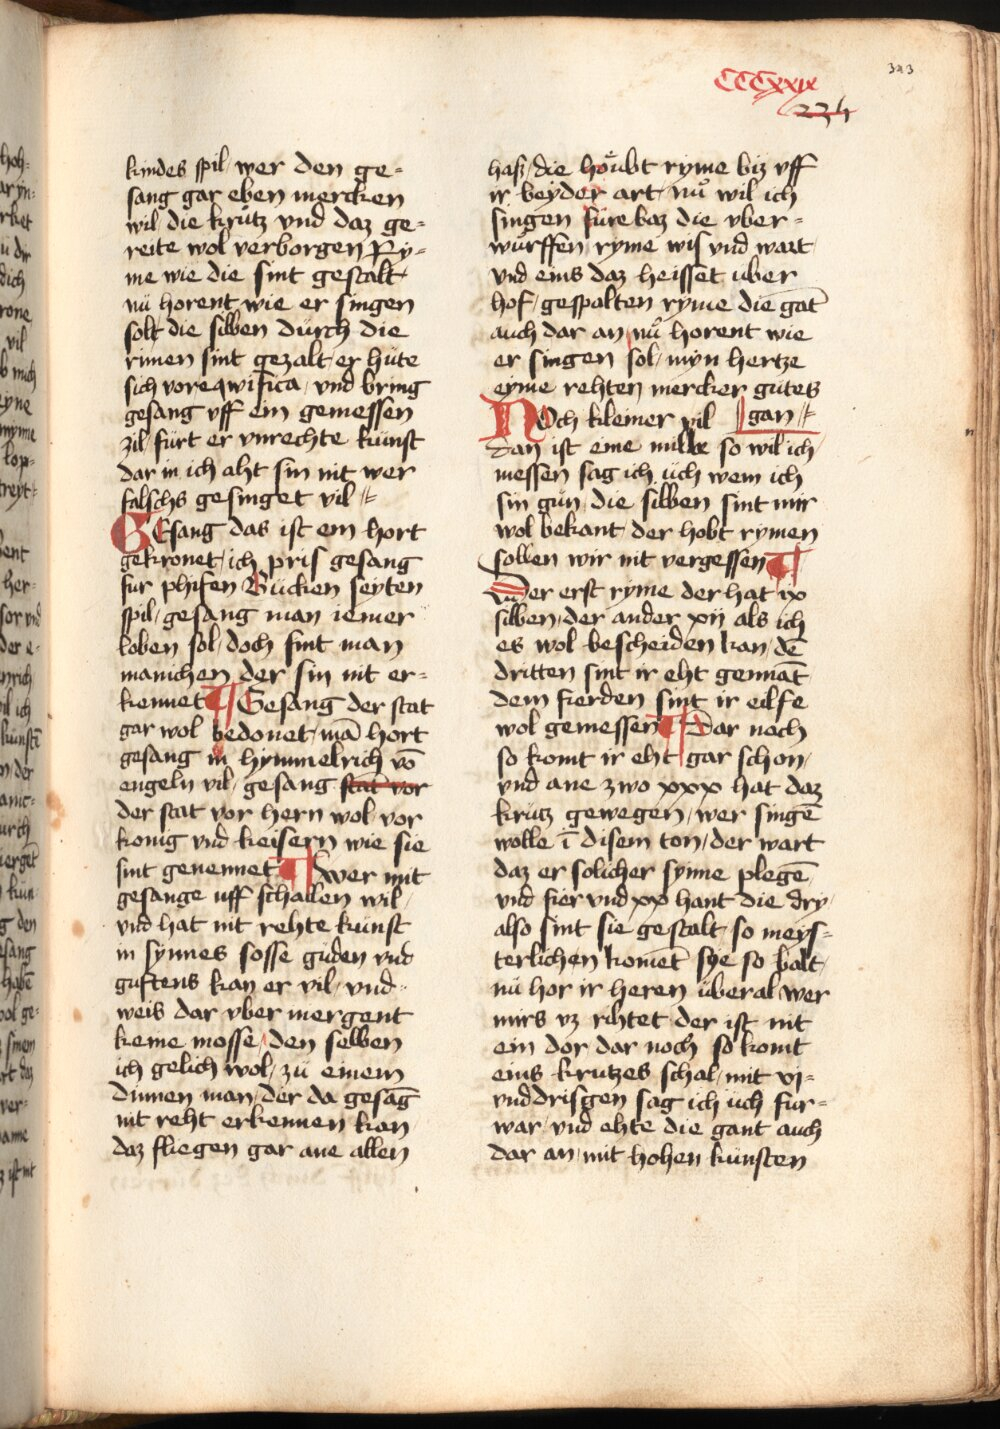 343
CCCxxix
234
kindes spil / wer den ge-
sang gar eben mercken
wil / die krütz vnd daz ge-
reite wol verborgen Ry-
me wie die sint gestalt /
nü horent wie er singen
solt die silben dürch die
rimen sint gezalt / er hüte
sich vor eqwifica / vnd bring
gesang vff ein gemessen
zil / fürt er vnrechte künst
dar in ich aht sin nit wer
falschs gesinget vil //
GEsang das ist ein hort
gekronet / ich pris gesang
fur phifen Bücken seyten
spil / gesang man iemer
loben sol / doch sint man
manichen der sin nit er-
kennet ¶ Gesang der stat
gar wol bedonet / mā hort
gesang in hymmelrich vō
engeln vil / gesang stat vor
der stat vor hern wol vor
konig vnd keisern wie sie
sint genennet ¶ wer mit
gesange uff schallen wil /
vnd hat nit rehte künst
in synnes sosse güden vnd
guftens kan er vil / vnd
weis dar vber mergent
keine mosse / den selben
ich gelich wol / zü einem
dünnen man / der da gesāg
nit reht erkennen kan
daz fliegen gar ane allen
hasz / die hoübt ryme biz vff
ir beyder art / nü wil ich
singen füre baz die vber-
würffen ryme wis vnd wart /
vnd eins daz heisset uber
hof / gespalten ryme die gāt
auch dar an / nü horent wie
er singen sol / myn hertze
eyme rehten mercker gutes
gan //
NOch kleiner vil
dan ist eine milwe so wil ich
messen sag ich üch wem ich
sin gün / die silben sint mir
wol bekant / der hobt rymen
sollen wir nit vergessen ¶
Der erst ryme der hat ix
silben / der ander xij als ich
es wol bescheiden kan / dē
dritten sint ir eht gennāt
dem fierden sint ir eilfe
wol gemessen ¶ Dar noch
so komt ir eht gar schon /
vnd ane zwo xxx hat daz
krütz gewegen / wer singē
wolle ī disem ton / der wart
daz er solicher synne plegē
vnd fier vnd xx hant die dry /
also sint sie gestalt / so meys-
terlichen komēt sye so balt /
nü hor ir heren überal wer
mirs vz rihtet der ist nit
ein dor dar noch so komt
eins krutzes schal / mit vi-
vnd drisgen sag ich üch fur-
war / vnd ehte die gant auch
dar an / mit hohen künsten